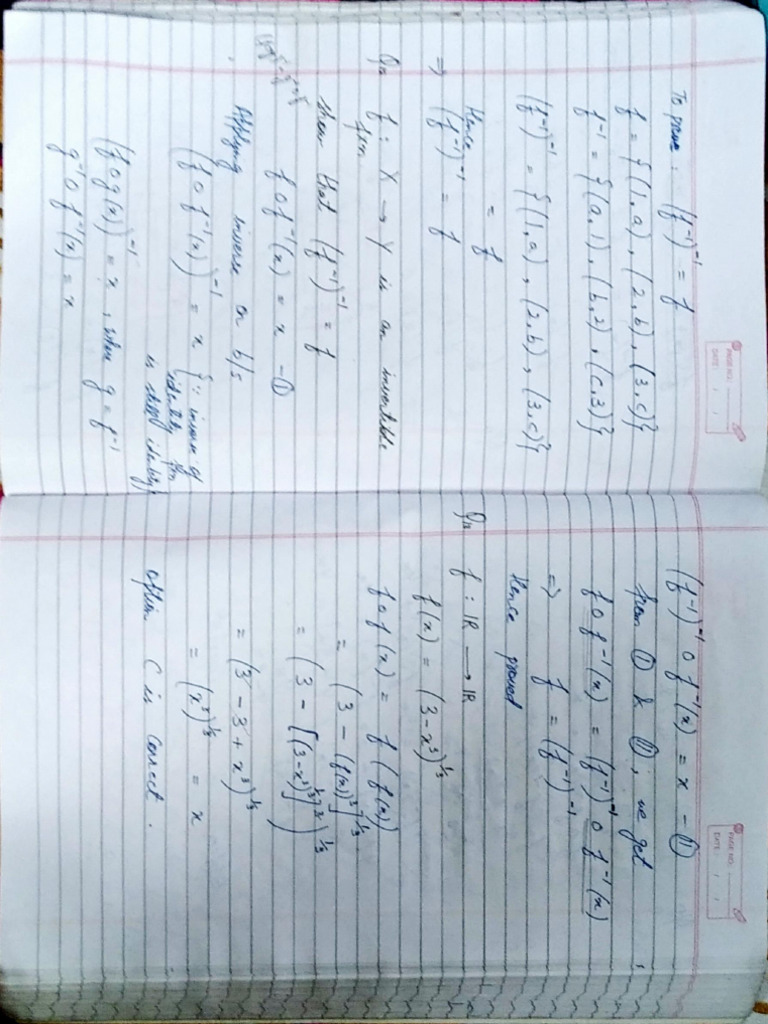 PAGE NO.:
DATE: / /
To prove: (f⁻¹)⁻¹ = f
f = {(1,a), (2,b), (3,c)}
f⁻¹ = {(a,1), (b,2), (c,3)}
(f⁻¹)⁻¹ = {(1,a), (2,b), (3,c)}
= f
Hence
⇒ (f⁻¹)⁻¹ = f
f : X → Y is an invertible
fxn
show that (f⁻¹)⁻¹ = f
f o f⁻¹(x) = x - ①
Applying inverse on b/s
(f o f⁻¹(x))⁻¹ = x {∵ inverse of
identity fxn
is itself identity}
(f o g(x))⁻¹ = x, when g = f⁻¹
g⁻¹ o f⁻¹(x) = x
PAGE NO.:
DATE: / /
(f⁻¹)⁻¹ o f⁻¹(x) = x - ⑪
from ① & ⑪, we get
f o f⁻¹(x) = (f⁻¹)⁻¹ o f⁻¹(x)
⇒ f = (f⁻¹)⁻¹
Hence proved
f : ℝ → ℝ
f(x) = (3-x³)^⅓
f o f(x) = f(f(x))
= (3 - (f(x))³]^⅓
= (3 - [(3-x³)^⅓]³)^⅓
= (3 - 3 + x³)^⅓
= (x³)^⅓ = x
option C is correct.